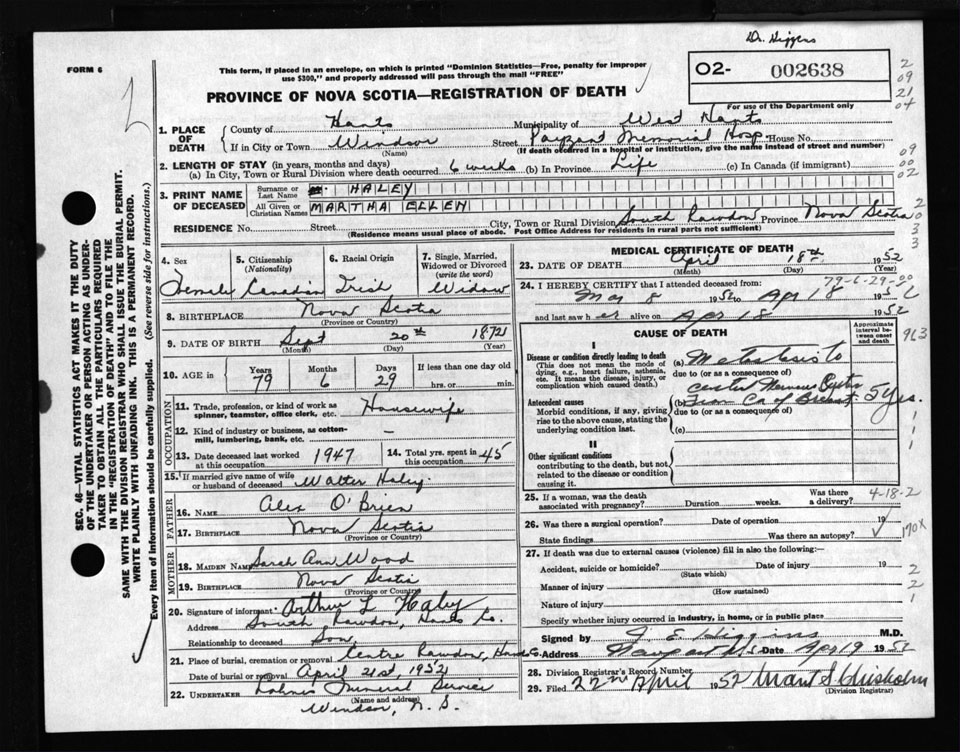 Dr. Higgens
FORM 6
This form, if placed in an envelope, on which is printed "Dominion Statistics—Free, penalty for improper use $300," and properly addressed will pass through the mail "FREE"
O2- 002638
For use of the Department only
PROVINCE OF NOVA SCOTIA—REGISTRATION OF DEATH
2
09
21
04
09
00
02
2
0
3
3
1. PLACE OF DEATH
County of Hants Municipality of West Hants
If in City or Town Windsor (Name) Street Payzant Memorial Hosp. House No.
(If death occurred in a hospital or institution, give the name instead of street and number)
2. LENGTH OF STAY (in years, months and days)
(a) In City, Town or Rural Division where death occurred 6 weeks (b) In Province Life (c) In Canada (if immigrant)
3. PRINT NAME OF DECEASED
Surname or Last Name HALEY
All Given or Christian Names MARTHA ELLEN
RESIDENCE No. Street City, Town or Rural Division South Rawdon Province Nova Scotia
(Residence means usual place of abode. Post Office Address for residents in rural parts not sufficient)
4. Sex Female
5. Citizenship (Nationality) Canadian
6. Racial Origin Irish
7. Single, Married, Widowed or Divorced (write the word) Widow
8. BIRTHPLACE Nova Scotia
(Province or Country)
9. DATE OF BIRTH Sept 20th 1872
(Month) (Day) (Year)
10. AGE in Years 79 Months 6 Days 29 If less than one day old hrs. or min.
OCCUPATION
11. Trade, profession, or kind of work as spinner, teamster, office clerk, etc. Housewife
12. Kind of industry or business, as cotton-mill, lumbering, bank, etc. —
13. Date deceased last worked at this occupation 1947
14. Total yrs. spent in this occupation 45
15. If married give name of wife or husband of deceased Walter Haley
FATHER
16. NAME Alex O'Brien
17. BIRTHPLACE Nova Scotia
(Province or Country)
MOTHER
18. MAIDEN NAME Sarah Ann Wood
19. BIRTHPLACE Nova Scotia
(Province or Country)
20. Signature of informant Arthur L Haley
Address South Rawdon, Hants Co.
Relationship to deceased Son
21. Place of burial, cremation or removal Centre Rawdon, Hants Co
Date of burial or removal April 21st, 1952
22. UNDERTAKER Funeral Service
(Name and address)
Windsor, N. S.
MEDICAL CERTIFICATE OF DEATH
23. DATE OF DEATH April 18th, 1952
(Month) (Day) (Year)
79-6-29-00
24. I HEREBY CERTIFY that I attended deceased from:
Mar 8 1952 to Apr 18 1952
and last saw her alive on Apr 18 1952
CAUSE OF DEATH
Approximate interval between onset and death
963
I
Disease or condition directly leading to death
(This does not mean the mode of dying, e.g., heart failure, asthenia, etc. It means the disease, injury, or complication which caused death.)
(a) Metastasis to
due to (or as a consequence of)
central Nervous System
Antecedent causes
Morbid conditions, if any, giving rise to the above cause, stating the underlying condition last.
(b) From Ca of Breast 5 Yrs.
due to (or as a consequence of)
(c)
II
Other significant conditions
contributing to the death, but not related to the disease or condition causing it.
25. If a woman, was the death associated with pregnancy? Duration weeks. Was there a delivery?
4-18-2
26. Was there a surgical operation? Date of operation 19
State findings Was there an autopsy?
170X
27. If death was due to external causes (violence) fill in also the following:—
Accident, suicide or homicide? (State which) Date of injury 19
Manner of injury
(How sustained)
Nature of injury
Specify whether injury occurred in industry, in home, or in public place
2
2
1
Signed by J. E. Higgins M.D.
Address Newport N.S. Date Apr 19 1952
28. Division Registrar's Record Number
29. Filed 22nd April 1952 S Chisholm
(Division Registrar)
SEC. 46—VITAL STATISTICS ACT MAKES IT THE DUTY OF THE UNDERTAKER OR PERSON ACTING AS UNDERTAKER TO OBTAIN ALL THE PARTICULARS REQUIRED IN THE "REGISTRATION OF DEATH" AND TO FILE THE SAME WITH THE DIVISION REGISTRAR WHO SHALL ISSUE THE BURIAL PERMIT.
WRITE PLAINLY WITH UNFADING INK. THIS IS A PERMANENT RECORD.
Every item of information should be carefully supplied. (See reverse side for instructions.)